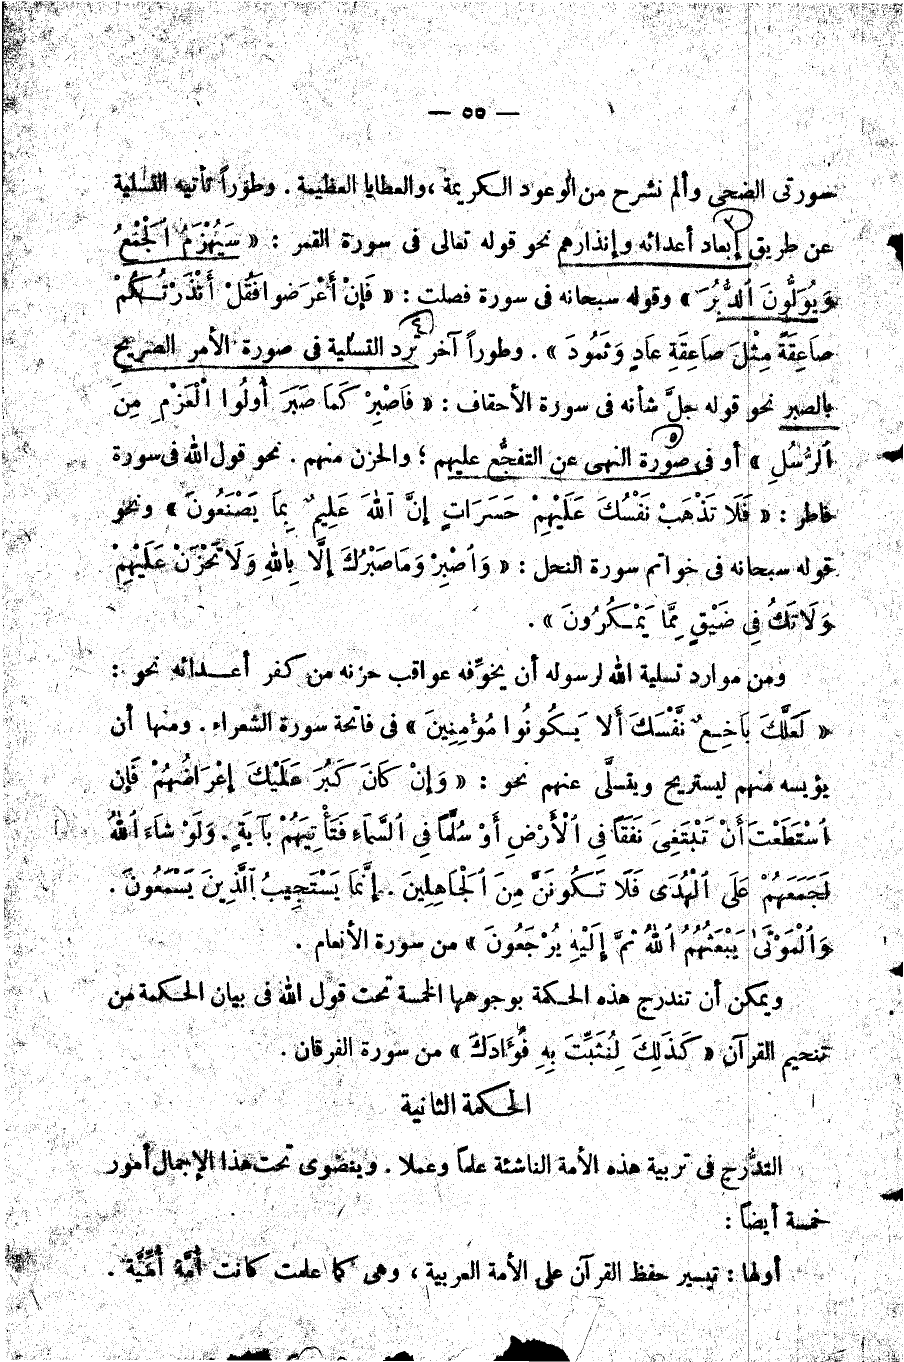 — ٥٥ —
سورتى الضحى وألم نشرح من الوعود الكريمة ، والعطايا العظيمة . وطوراً تأتيه التسلية
عن طريق إبعاد أعدائه وإنذارهم نحو قوله تعالى فى سورة القمر : « سَيُهْزَمُ ٱلْجَمْعُ
وَيُوَلُّونَ ٱلدُّبُرَ » وقوله سبحانه فى سورة فصلت : « فَإِنْ أَعْرَضُوا فَقُلْ أَنْذَرْتُكُمْ
صَاعِقَةً مِثْلَ صَاعِقَةِ عَادٍ وَثَمُودَ » . وطوراً آخر ترد التسلية فى صورة الأمر الصريح
بالصبر نحو قوله جلَّ شأنه فى سورة الأحقاف : « فَاصْبِرْ كَمَا صَبَرَ أُولُوا الْعَزْمِ مِنَ
ٱلرُّسُلِ » أو فى صورة النهى عن التفجُّع عليهم ؛ والحزن منهم . نحو قول الله فى سورة
فاطر : « فَلَا تَذْهَبْ نَفْسُكَ عَلَيْهِمْ حَسَرَاتٍ إِنَّ ٱللهَ عَلِيمٌ بِمَا يَصْنَعُونَ » ونحو
قوله سبحانه فى خواتم سورة النحل : « وَٱصْبِرْ وَمَا صَبْرُكَ إِلَّا بِاللهِ وَلَا تَحْزَنْ عَلَيْهِمْ
وَلَا تَكُ فِى ضَيْقٍ مِمَّا يَمْكُرُونَ » .
ومن موارد تسلية الله لرسوله أن يخوِّفه عواقب حزنه من كفر أعدائه نحو :
« لَعَلَّكَ بَاخِعٌ نَّفْسَكَ أَلا يَكُونُوا مُؤْمِنِينَ » فى فاتحة سورة الشعراء . ومنها أن
يؤيسه منهم ليستريح ويتسلَّى عنهم نحو : « وَإِنْ كَانَ كَبُرَ عَلَيْكَ إِعْرَاضُهُمْ فَإِنِ
ٱسْتَطَعْتَ أَنْ تَبْتَغِىَ نَفَقاً فِى ٱلْأَرْضِ أَوْ سُلَّماً فِى ٱلسَّمَاءِ فَتَأْتِيَهُمْ بِآيَةٍ . وَلَوْ شَاءَ ٱللهُ
لَجَمَعَهُمْ عَلَى ٱلْهُدَى فَلَا تَكُونَنَّ مِنَ ٱلْجَاهِلِينَ . إِنَّمَا يَسْتَجِيبُ ٱلَّذِينَ يَسْمَعُونَ .
وَٱلْمَوْتَى يَبْعَثُهُمُ ٱللهُ ثُمَّ إِلَيْهِ يُرْجَعُونَ » من سورة الأنعام .
ويمكن أن تندرج هذه الحكمة بوجوهها الخمسة تحت قول الله فى بيان الحكمة من
تنجيم القرآن « كَذَلِكَ لِنُثَبِّتَ بِهِ فُؤَادَكَ » من سورة الفرقان .
الحكمة الثانية
التدرُّج فى تربية هذه الأمة الناشئة علماً وعملا . وينضوى تحت هذا الإجمال أمور
خمسة أيضاً :
أولها : تيسير حفظ القرآن على الأمة العربية ، وهى كما علمت كانت أُمَّة أُمِّيَّة .